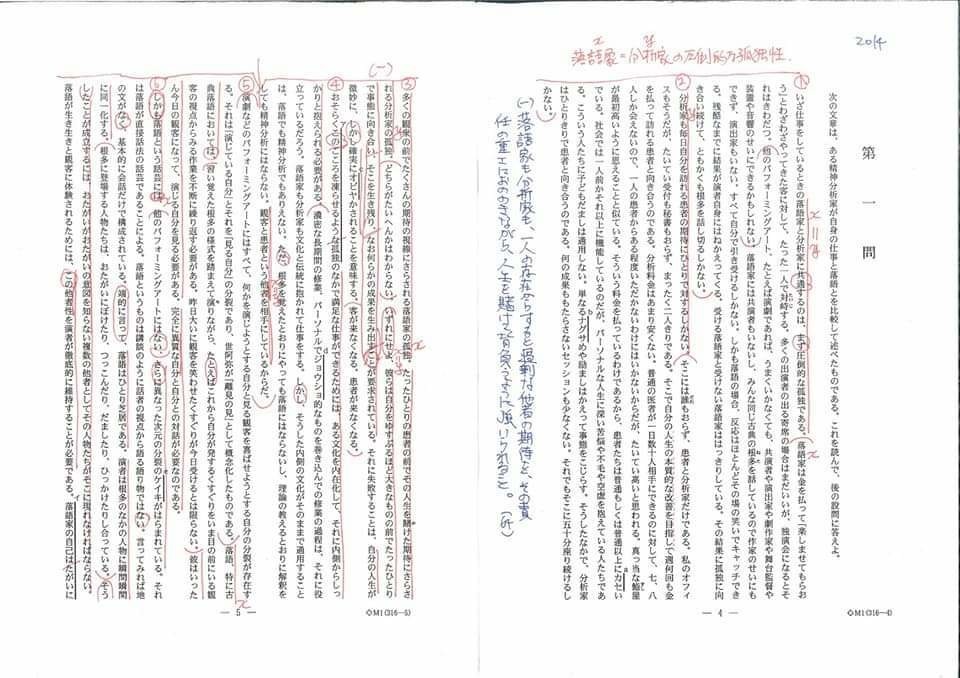 2014
落語家=分析家の圧倒的な孤独性.
第一問
次の文章は、ある精神分析家が自身の仕事と落語とを比較して述べたものである。これを読んで、後の設問に答えよ。
①いざ仕事をしているときの落語家と分析家に共通するのは、まず圧倒的な孤独である。落語家は金を払って「楽しませてもらお
う」とわざわざやってきた客に対して、たった一人で対峙する。多くの出演者の出る寄席の場合はまだいいが、独演会になるとそ
れはきわだつ。他のパフォーミングアート、たとえば演劇であれば、うまくいかなくても、共演者や演出家や劇作家や舞台監督や
装置や音響のせいにできるかもしれない。落語家には共演者もいないし、みんな同じ古典の根多を話しているので作家のせいにも
できず、演出家もいない。すべて自分で引き受けるしかない。しかも落語の場合、反応はほとんどその場の笑いでキャッチでき
る。残酷なまでに結果が演者自身にはねかえってくる。受ける落語家と受けない落語家ははっきりしている。その結果に孤独に向
き合い続けて、ともかくも根多を話し切るしかない。
②分析家も毎日自分を訪れる患者の期待にひとりで対するしかない。そこには誰もおらず、患者と分析家だけである。私のオフィ
スもそうだが、たいてい受付も秘書もおらず、まったく二人きりである。そこで自分の人生の本質的な改善を目指して週何回も金
を払って訪れる患者と向き合うのである。分析料金はあまり安くない。普通の医者が一日数十人相手にできるのに対して、七、八
人しか会えないので、一人の患者からある程度いただかないわけにはいかないからだが、たいてい高いと思われる。真っ当な鮨屋
が最初高いように思えることと似ている。そういう料金を払っているわけであるから、患者たちは普通もしくは普通以上にカセい
でいる。社会では一人前かそれ以上に機能しているのだが、パーソナルな人生に深い苦悩や不毛や空虚を抱えている人たちであ
る。こういう人たちに子どもだましは通用しない。単なるナグサめや励ましはかえって事態をこじらす。そうしたなかで、分析家
はひとりきりで患者と向き合うのである。何の成果ももたらさないセッションも少なくない。それでもそこに五十分座り続けるし
かない。
(一)落語家も分析家も、一人の存在からすると過剰な他者の期待と、その責
任の重圧におののきながら、人生を賭けて背負うように強いられること。
— 4 —
◇M1(316—4)
(一)
③多くの観衆の前でたくさんの期待の視線にさらされる落語家の孤独。たったひとりの患者の前でその人生を賭けた期待にさらさ
れる分析家の孤独。どちらがたいへんかはわからない。いずれにせよ、彼らは自分をゆすぶるほど大きなものの前でたったひとり
で事態に向き合い、そこを生き残り、なお何らかの成果を生み出すことが要求されている。それに失敗することは、自分の人生が
微妙に、しかし確実にオビヤかされることを意味する。客が来なくなる。患者が来なくなる。
④おそらくこのこころを凍らせるような孤独のなかで満足な仕事ができるためには、ある文化を内在化して、それに内側からしっ
かりと抱えられる必要がある。濃密な長期間の修業、パーソナルでジョウショ的なものを巻き込んでの修業の過程は、それに役
立っているだろう。落語家も分析家も文化と伝統に抱かれて仕事をする。しかし、そうした内側の文化がそのままで通用すること
は、落語でも精神分析でもありえない。ただ、根多を覚えたとおりにやっても落語にはならないし、理論の教えるとおりに解釈を
しても精神分析にはならない。観客と患者という他者を相手にしているからだ。
⑤演劇などのパフォーミングアートにはすべて、何かを演じようとする自分と見る観客を喜ばせようとする自分の分裂が存在す
る。それは「演じている自分」とそれを「見る自分」の分裂であり、世阿弥が「離見の見」として概念化したものである。落語、特に古
典落語においては、習い覚えた根多の様式を踏まえて演りながら、たとえばこれから自分が発するくすぐりをいま目の前にいる観
客の視点からみる作業を不断に繰り返す必要がある。昨日大いに観客を笑わせたくすぐりが今日受けるとは限らない。彼はいった
ん今日の観客になって、演じる自分を見る必要がある。完全に異質な自分と自分との対話が必要なのである。
⑥しかも落語という話芸には、他のパフォーミングアートにはない、さらに異なった次元の分裂のケイキがはらまれている。それ
は落語が直接話法の話芸であることによる。落語というものは講談のように話者の視点から語る語り物ではない。言ってみれば地
の文がなく、基本的に会話だけで構成されている。端的に言って、落語はひとり芝居である。演者は根多のなかの人物に瞬間瞬間
に同一化する。根多に登場する人物たちは、おたがいにぼけたり、つっこんだり、だましたり、ひっかけたりし合っている。そう
したことが成立するには、おたがいがおたがいの意図を知らない複数の他者としてその人物たちがそこに現れなければならない。
落語が生き生きと観客に体験されるためには、この他者性を演者が徹底的に維持することが必要である。落語家の自己はたがいに
— 5 —
◇M1(316—5)